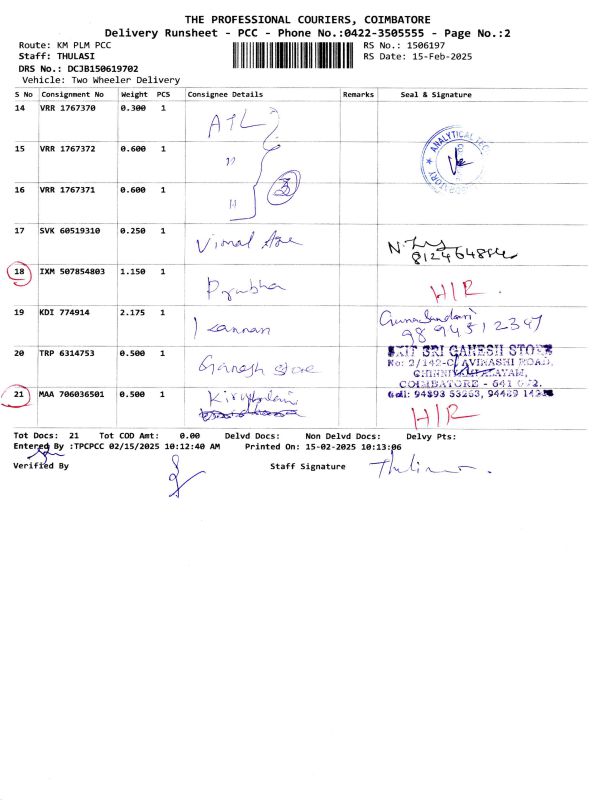 THE PROFESSIONAL COURIERS, COIMBATORE
Delivery Runsheet - PCC - Phone No.:0422-3505555 - Page No.:2
Route: KM PLM PCC RS No.: 1506197
Staff: THULASI RS Date: 15-Feb-2025
DRS No.: DCJB150619702
Vehicle: Two Wheeler Delivery
S No Consignment No Weight PCS Consignee Details Remarks Seal & Signature
14 VRR 1767370 0.300 1 ATL
15 VRR 1767372 0.600 1 " ANALYTICAL
16 VRR 1767371 0.600 1 "
17 SVK 60519310 0.250 1 Vimal
18 IXM 507854803 1.150 1 Prabha H/R.
19 KDI 774914 2.175 1 Kannan 9894512347
20 TRP 6314753 0.500 1 Ganesh Store SRI GANESH STORE
No: 2/142-C, AVINASHI ROAD,
COIMBATORE - 641 062.
21 MAA 706036501 0.500 1 H/R
Tot Docs: 21 Tot COD Amt: 0.00 Delvd Docs: Non Delvd Docs: Delvy Pts:
Entered By :TPCPCC 02/15/2025 10:12:40 AM Printed On: 15-02-2025 10:13:06
Verified By Staff Signature